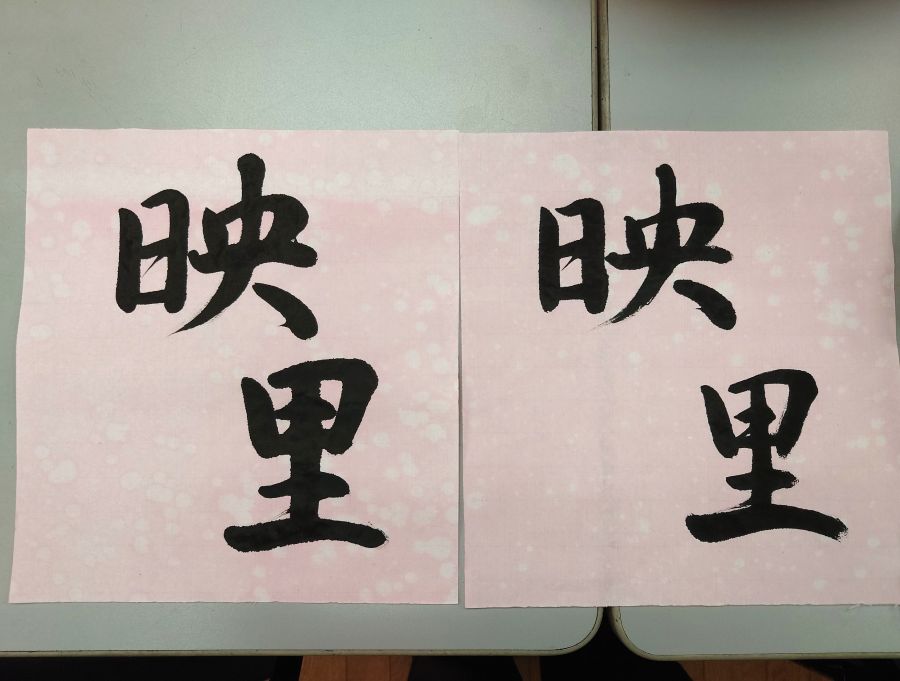 映
里
映
里